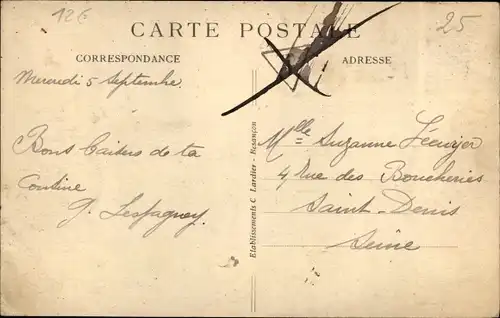 12€
25
CARTE POSTALE
CORRESPONDANCE
ADRESSE
Mercredi 5 Septembre.
Bons baisers de ta
Cousine
G. Lespagney.
Etablissements C. Lardier - Besançon
Mlle Suzanne
4 Rue des Boucheries
Saint-Denis
Seine